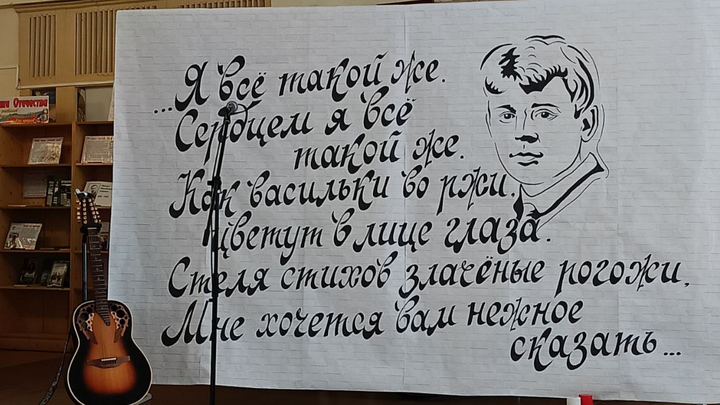 Отечества
...Я всё такой же.
Сердцем я всё
такой же.
Как васильки во ржи,
цветут в лице глаза.
Стеля стихов злачёные рогожи,
Мне хочется вам нежное
сказать...